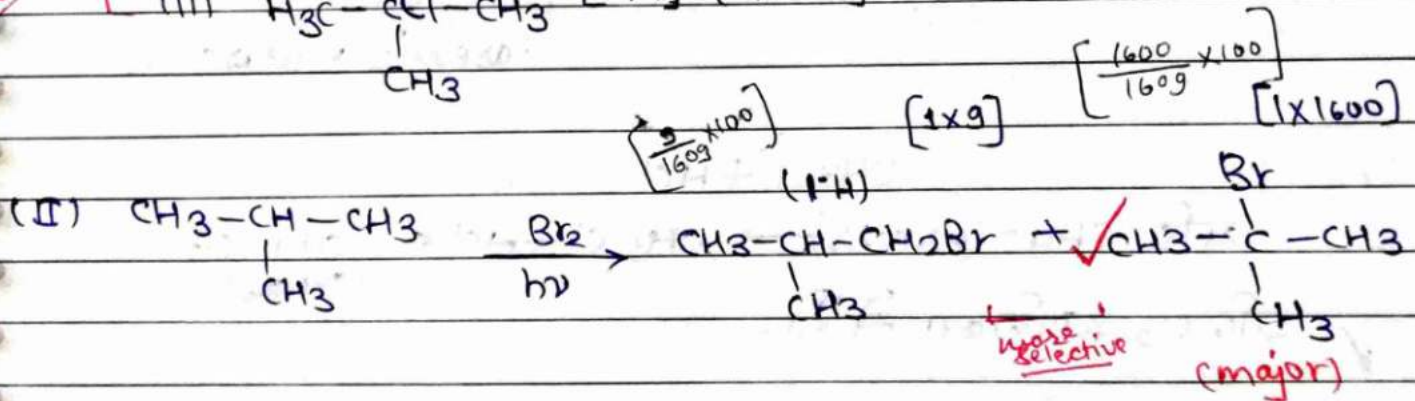 H3C – CCl – CH3
CH3
[9/1609 ×100] [1×9] [1600/1609 ×100] [1×1600]
(1°H) Br
(II) CH3–CH–CH3 Br2 CH3–CH–CH2Br + ✓CH3–C–CH3
CH3 hν CH3 CH3
more selective
(major)